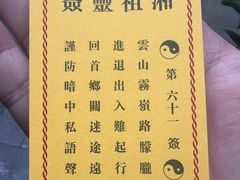 湘祖靈簽
第六十一簽
雲山霧嶺路朦朧
進退出入難起行
回首鄉關迷途遠
謹防暗中私語聲